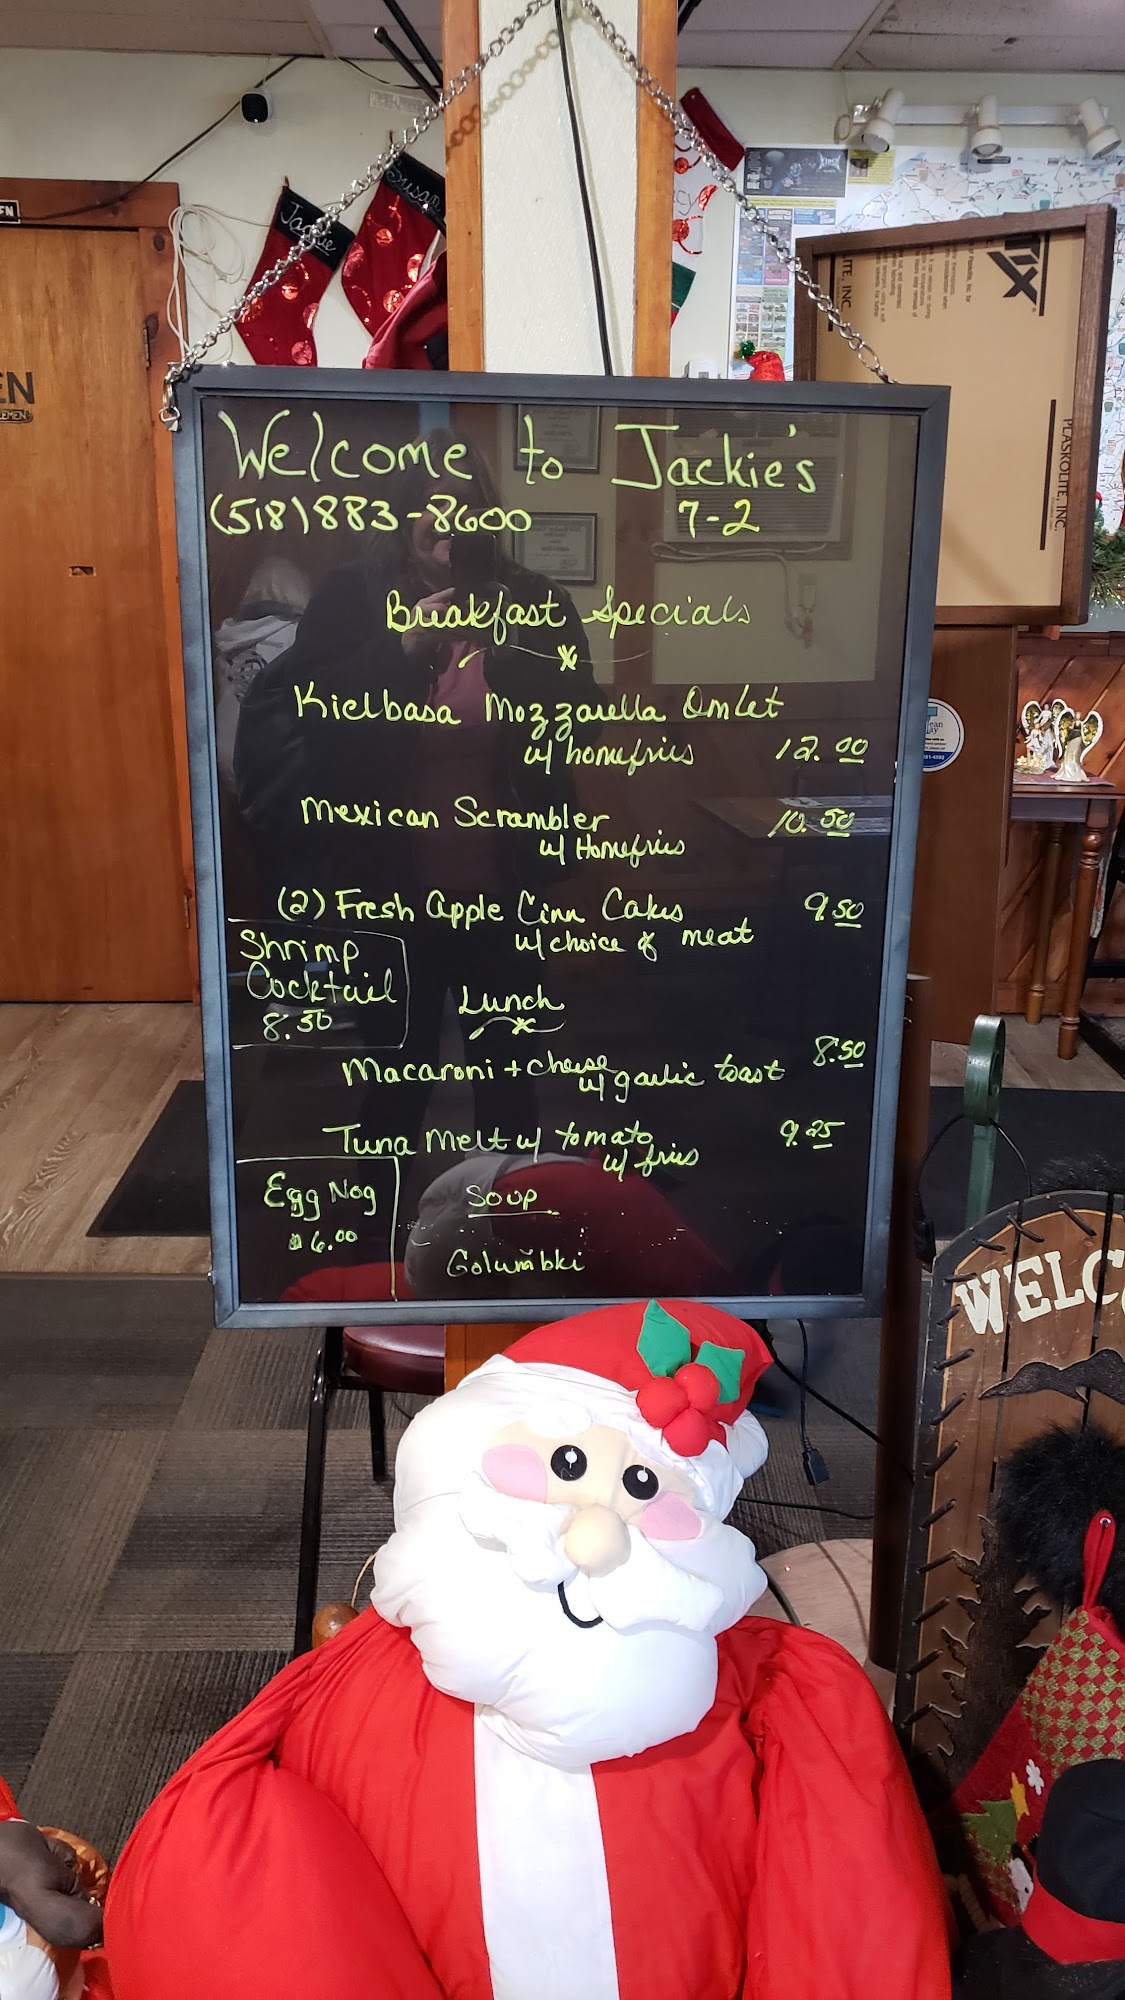 Jackie
Susan
EN
EN
Welcome to Jackie's
(518)883-8600 7-2
Breakfast Specials
Kielbasa Mozzarella Omlet
w/ homefries 12.00
Mexican Scrambler 10.50
w/ Homefries
(2) Fresh Apple Cinn Cakes 9.50
w/ choice of meat
Shrimp
Cocktail
8.50
Lunch
Macaroni + cheese 8.50
w/ garlic toast
Tuna Melt w/ tomato 9.25
w/ fries
Egg Nog
$6.00
Soup
Golumbki
PLASKOLITE, INC.
WELC